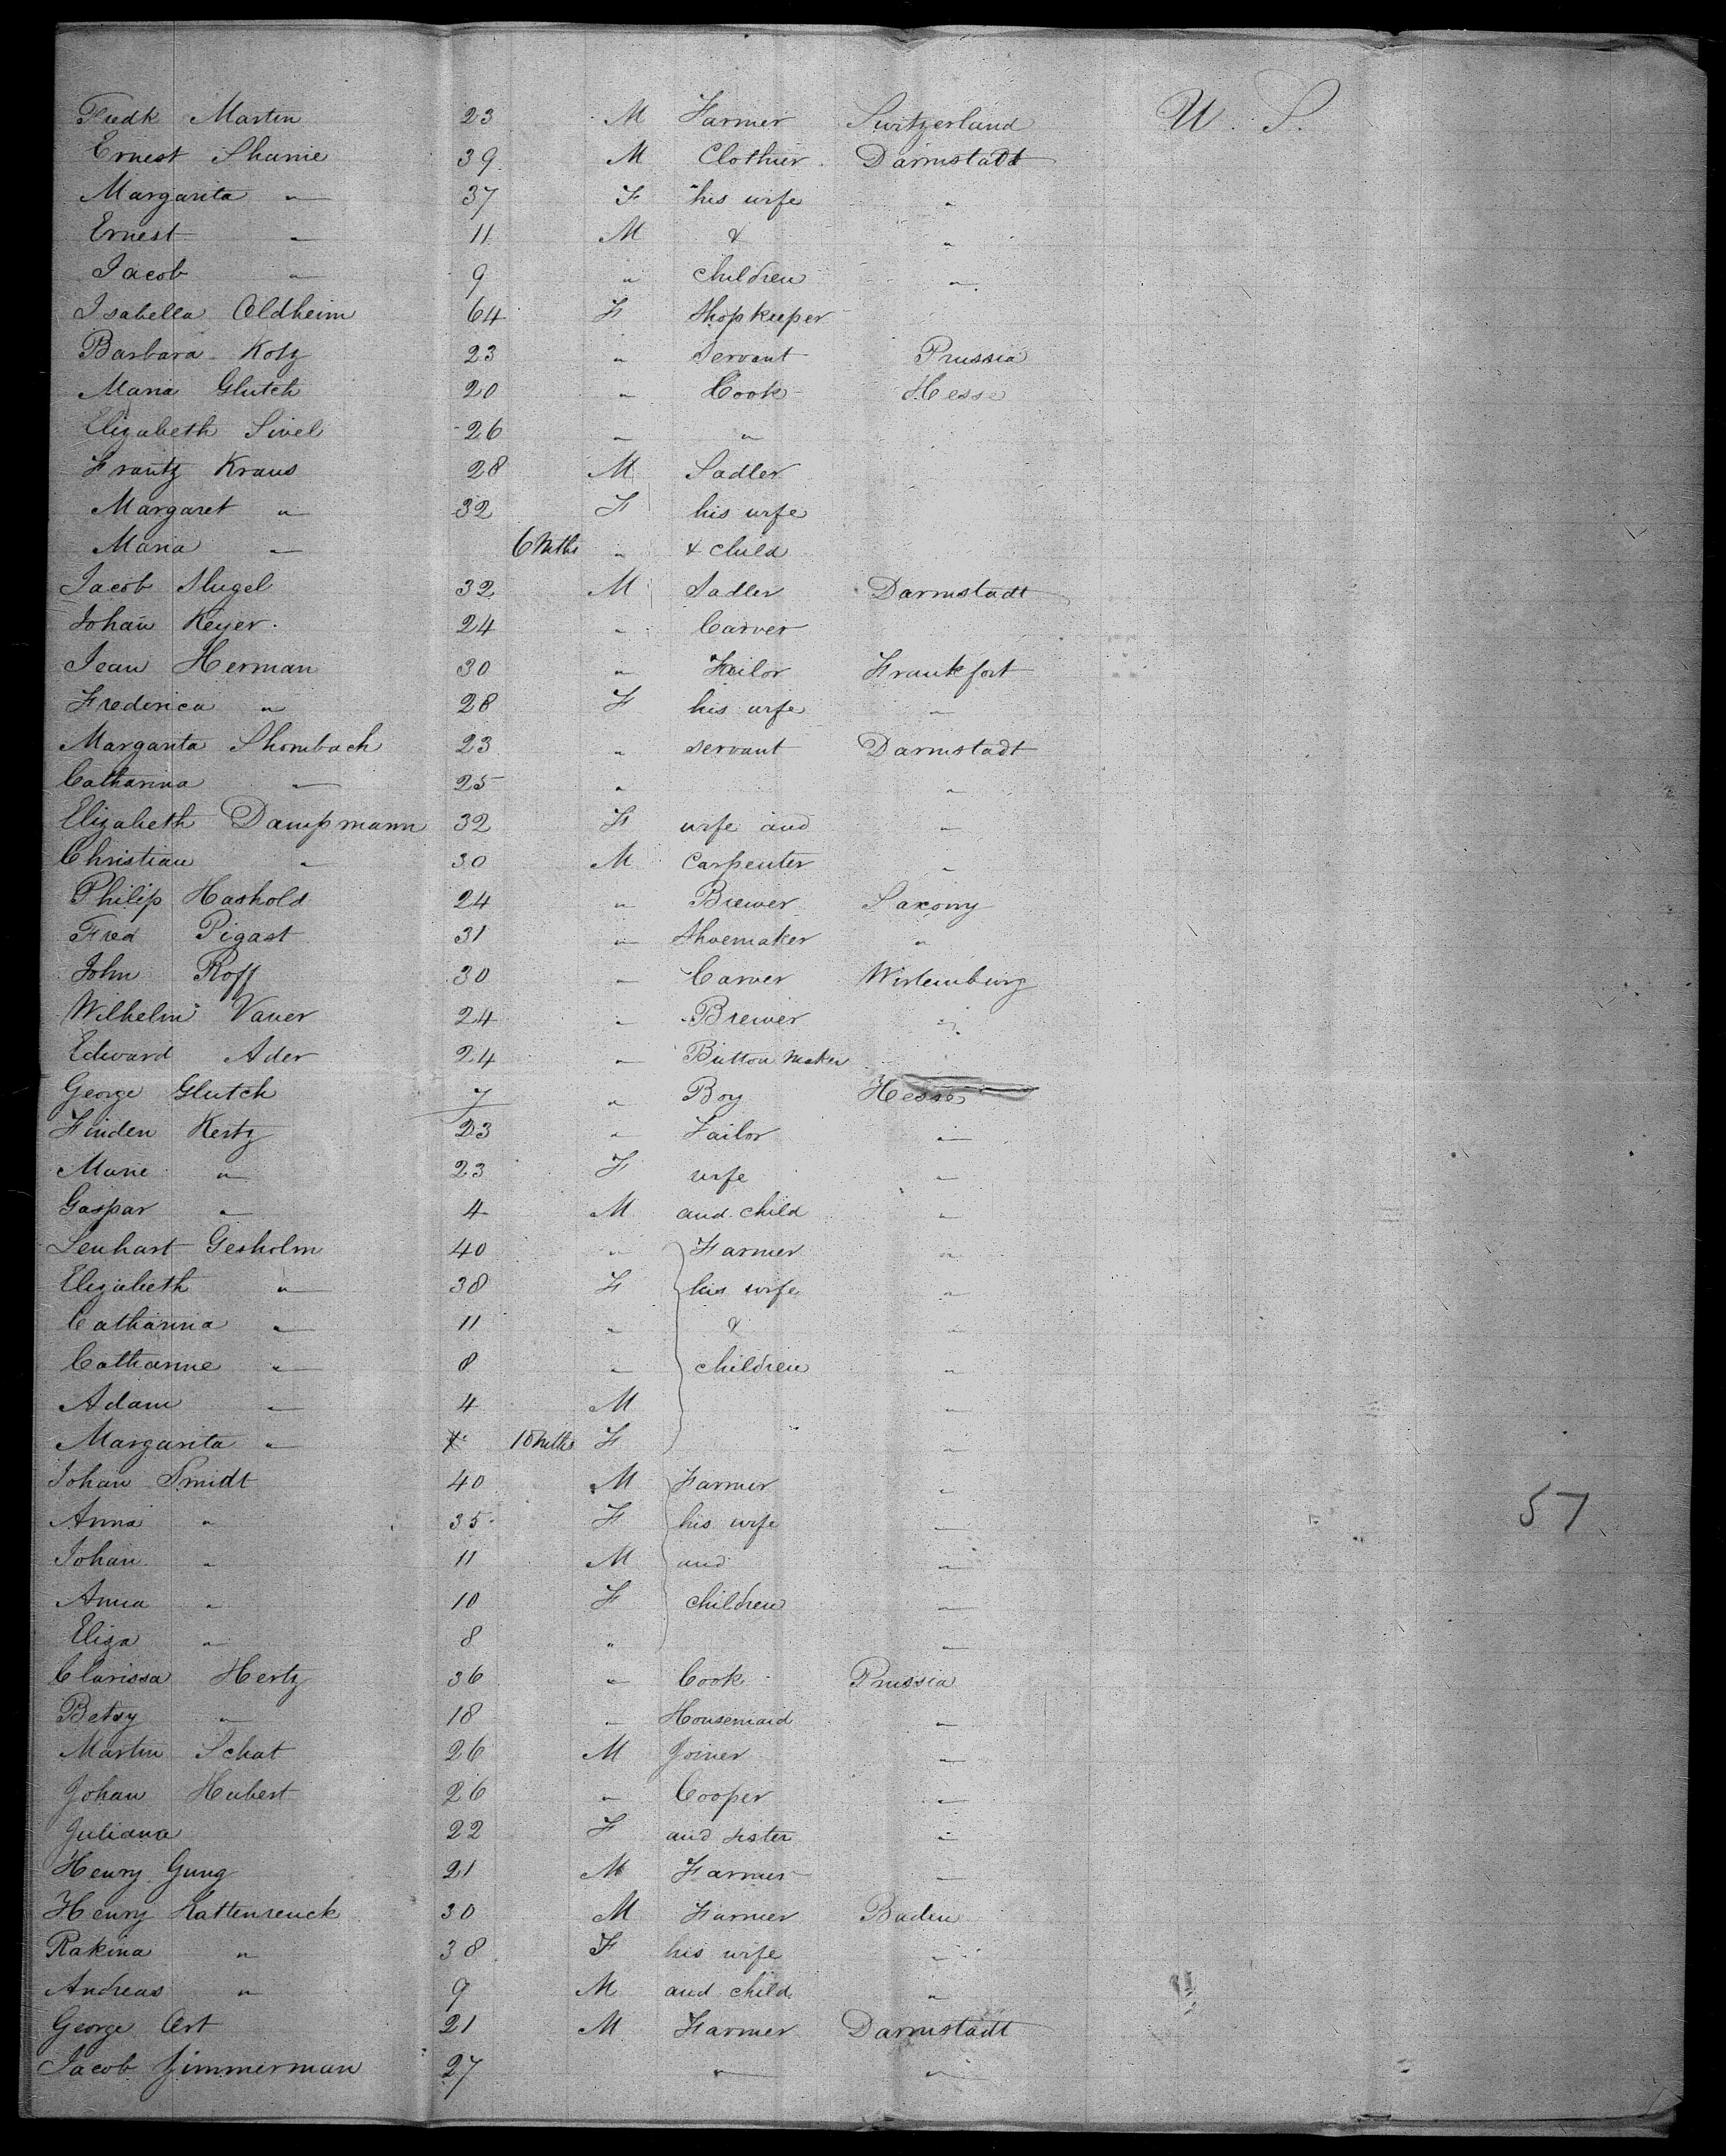 Fredk Martin 23 M Farmer Switzerland U. S.
Ernest Shunie 39 M Clothier Darmstadt
Margarita " 37 F his wife "
Ernest " 11 M & "
Jacob " 9 " children "
Isabella Oldheim 64 F Shopkeeper
Barbara Kolz 23 " Servant Prussia
Maria Glutch 20 " Cook Hesse
Elizabeth Sivel 26 " "
Frantz Kraus 28 M Sadler
Margaret " 32 F his wife
Maria " 6 Mths " & child
Jacob Slugel 32 M Sadler Darmstadt
Johan Keyer 24 " Carver
Jean Herman 30 " Tailor Frankfort
Frederica " 28 F his wife "
Margarita Shombach 23 " servant Darmstadt
Catharina " 25 " "
Elizabeth Dampmann 32 F wife and "
Christian " 30 M Carpenter "
Philip Hashold 24 " Brewer Saxony
Fred Pigast 31 " Shoemaker "
John Roff 30 " Carver Wirtemburg
Wilhelm Vaner 24 " Brewer "
Edward Ader 24 " Button Maker
George Glutch 7 " Boy Hesse
Finden Kertz 23 " Tailor "
Marie " 23 F wife "
Gaspar " 4 M and child "
Lenhart Gesholm 40 " Farmer "
Elizabeth " 38 F his wife "
Catharina " 11 " & "
Catharine " 8 " children "
Adam " 4 M "
Margarita " 10 Mths F "
Johan Smidt 40 M Farmer "
Anna " 35 F his wife " 57
Johan " 11 M and "
Anna " 10 F children "
Eliza " 8 " "
Clarissa Hertz 36 " Cook Prussia
Betsy " 18 " Housemaid "
Martin Schat 26 M Joiner "
Johan Hubert 26 " Cooper "
Juliana 22 F and sister "
Henry Gung 21 M Farmer "
Henry Kattenreuck 30 M Farmer Baden
Rakina " 38 F his wife "
Andreas " 9 M and child "
George Ort 21 M Farmer Darmstadt
Jacob Zimmerman 27 " "